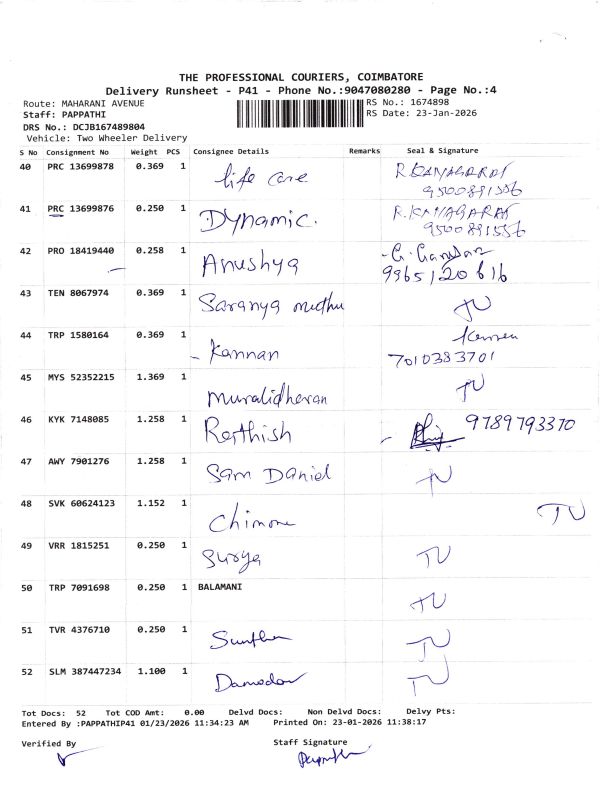 THE PROFESSIONAL COURIERS, COIMBATORE
Delivery Runsheet - P41 - Phone No.:9047080280 - Page No.:4
Route: MAHARANI AVENUE RS No.: 1674898
Staff: PAPPATHI RS Date: 23-Jan-2026
DRS No.: DCJB167489804
Vehicle: Two Wheeler Delivery
S No Consignment No Weight PCS Consignee Details Remarks Seal & Signature
40 PRC 13699878 0.369 1 life care R.KANAGARAJ
9500891556
41 PRC 13699876 0.250 1 Dynamic. R.KANAGARAJ
9500891556
42 PRO 18419440 0.258 1 Anushya
9965120616
43 TEN 8067974 0.369 1 Saranya muthu TU
44 TRP 1580164 0.369 1 - Kannan Kannan
7010383701
45 MYS 52352215 1.369 1 Muralidharan TU
46 KYK 7148085 1.258 1 Rerthish 9789793370
47 AWY 7901276 1.258 1 Sam Daniel TU
48 SVK 60624123 1.152 1 TU
49 VRR 1815251 0.250 1 Surya TU
50 TRP 7091698 0.250 1 BALAMANI TU
51 TVR 4376710 0.250 1 TU
52 SLM 387447234 1.100 1 Damodar TU
Tot Docs: 52 Tot COD Amt: 0.00 Delvd Docs: Non Delvd Docs: Delvy Pts:
Entered By :PAPPATHIP41 01/23/2026 11:34:23 AM Printed On: 23-01-2026 11:38:17
Verified By Staff Signature